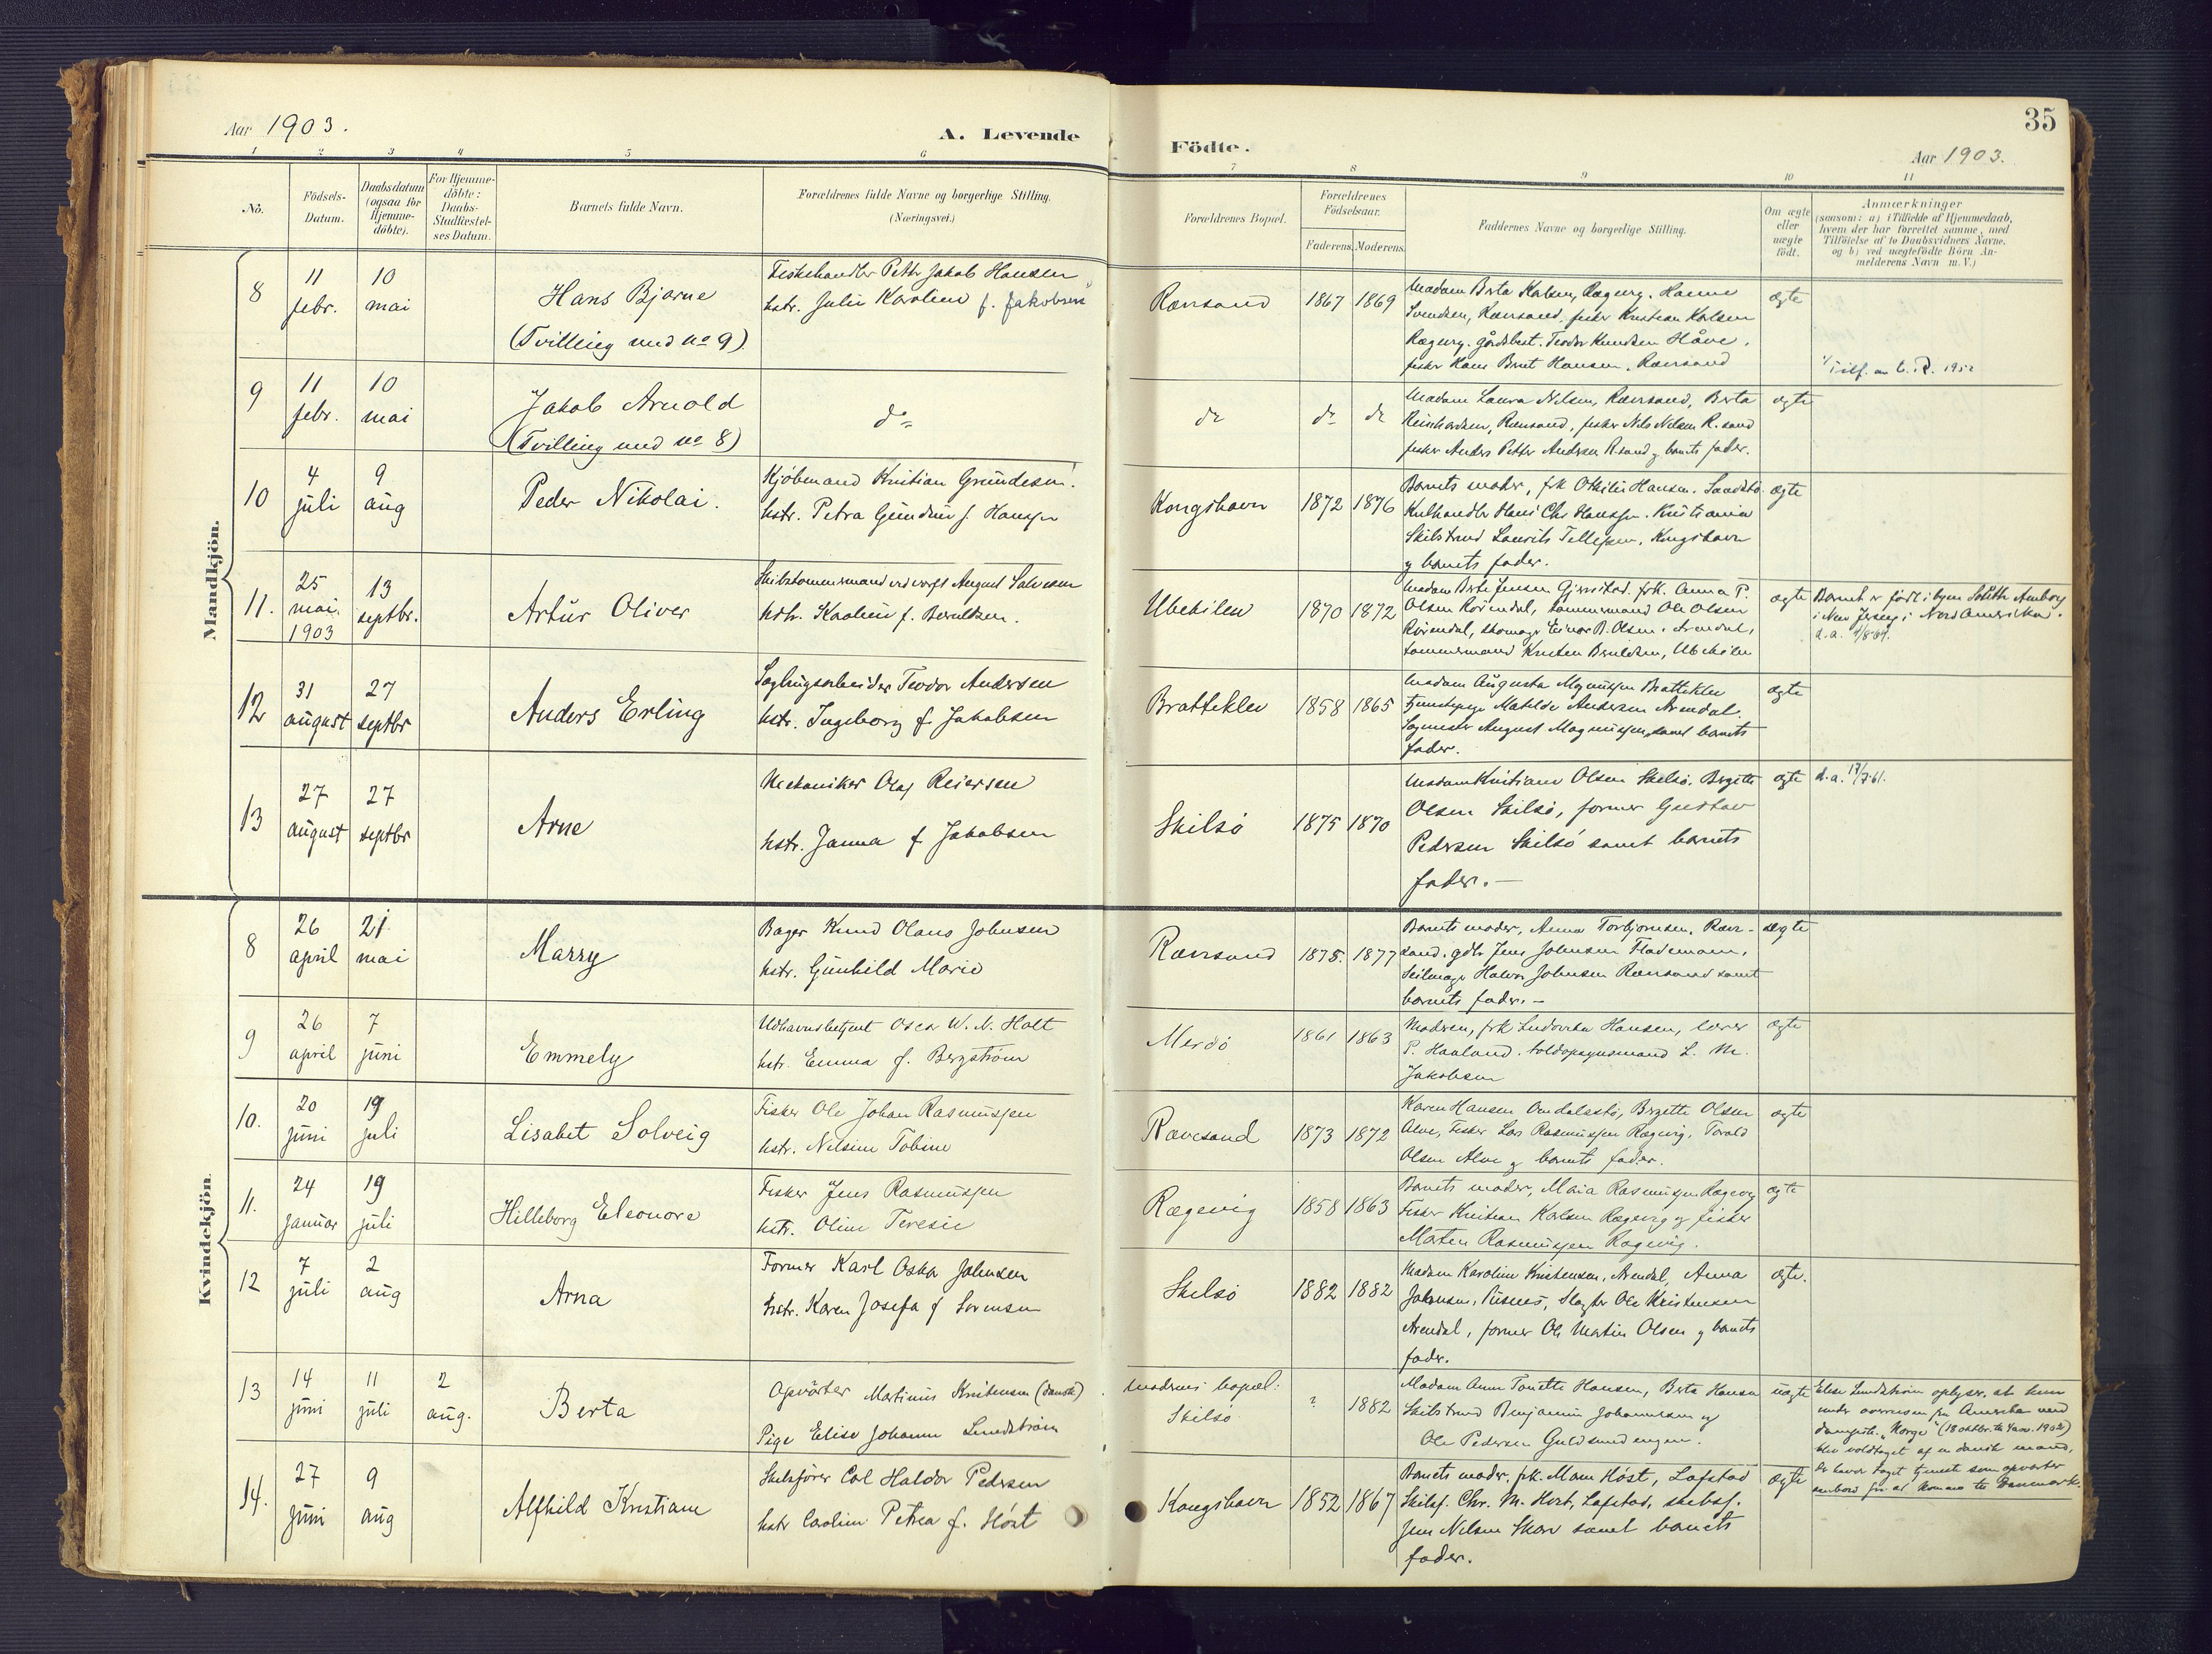 35
Aar 1903.
A. Levende
Födte.
Aar 1903.
1 2 3 4 5 6 7 8 9 10 11
No.
Födsels-
Datum.
Daabsdatum
(ogsaa for
Hjemme-
döbte).
For Hjemme-
döbte:
Daabs-
Stadfæstel-
ses Datum.
Barnets fulde Navn.
Forældrenes fulde Navne og borgerlige Stilling.
(Næringsvei.)
Forældrenes Bopæl.
Forældrenes
Födselsaar.
Faderens. Moderens.
Faddernes Navne og borgerlige Stilling.
Om ægte
eller
uægte
födt.
Anmærkninger
(saasom: a) i Tilfælde af Hjemmedaab,
hvem der har forrettet samme, med
Tilföielse af to Daabsvidners Navne,
og b) ved uægtefödte Börn An-
melderens Navn m. V.)
Mandkjön.
8
11
febr.
10
mai
Hans Bjarne
(Tvilling med no 9)
Fiskehandler Petter Jakob Hansen
hstr. Julie Karoline f. Jakobsen
Rævsand
1867
1869
Madam Berta Karlsen, Rægevig. Hanne
Svendsen, Rævesand, fisker Kristian Karlsen
Rægevig. gårdbest. Teodor Knudsen Håve,
fisker Hans Bernt Hansen, Rævesand
ægte
9
11
febr.
10
mai
Jakob Arnold
(Tvilling med no 8)
do
do
do
do
Madam Laura Nilsen, Rævesand, Berta
Reinhardsen, Rævesand, fisker Nils Nilsen R.sand
fisker Anders Petter Andersen R.sand og barnets fader.
ægte
10
4
juli
9
aug
Peder Nikolai.
Kjöbmand Kristian Gundersen
hstr. Petra Gundine f. Hansen
Kongshavn
1872
1876
Barnets moder, frk Othilie Hansen.
Kulhandler Hans Chr Hansen. Kristiania
Skibstmd Laurits Tellefsen, Kongshavn
og barnets fader.
ægte
11.
25
mai
1903
13
septbr.
Artur Oliver
Skibstömmermand ved verft August Salvesen
hstr. Karoline f. Berntsen.
Ubekilen
1870
1872
Madam Berte Jensen Gjerstad. frk. Anna P.
Olsen Rörendal, tömmermand Ole Olsen
Rörendal, skomager Einar B. Olsen. Arendal,
tömmermand Kristen Berntsen, Ubekilen
ægte
Barnet er födt i byen South Amboy
i New Jersey i Nord Amerika.
12
31
august
27
septbr
Anders Erling
Sagbrugsarbeider Teodor Andersen
hstr. Ingeborg f. Jakobsen
Brattekлev
1858
1865
Madam Augusta Magnussen Brattekлev
tjenestepige Matilde Andersen Arendal.
Sagmester August Magnussen samt barnets
fader.
ægte
13
27
august
27
septbr
Arne
Mekaniker Olaf Reiersen
hstr. Janna f Jakobsen
Skilsö
1875
1870
Madam Kristiane Olsen Skilsö. Bergitte
Olsen Skilsö, former Gustav
Pedersen Skilsö samt barnets
fader.—
ægte
d.a. 17/7-61.
Kvindekjön.
8
26
april
21
mai
Marry
Bager Knud Olaus Johnsen
hstr. Gunhild Marie
Rævesand
1875.
1877
Barnets moder, Anna Torbjörnsen, Ræve-
sand. gdbr. Jens Johnsen Flademoen,
Seilmager Halvor Johnsen Rævesand samt
barnets fader.—
ægte
9
26
april
7
juni
Emmely
Udhavnsbetjent Oscar W. N. Holt
hstr. Emma f. Bergström
Merdö
1861
1863
Moderen, frk Ludovika Hansen, lærer
P. Haaland. toldopsynsmand L. M.
Jakobsen
ægte
10.
20
juni
19
juli
Lisabet Solveig
Fisker Ole Johan Rasmussen
hstr. Nilsine Tobine
Rævesand
1873
1872
Karen Hansen Omdalsstö, Bergitte Olsen
Alve, Fisker Lars Rasmussen Rægevig, Torald
Olsen Alve og barnets fader.
ægte
11.
24
januar
19
juli
Hilleborg Eleonore
Fisker Jens Rasmussen
hstr. Oline Teresie
Rægevig
1858
1863
Barnets moder, Maria Rasmussen Rægevig
Fisker Kristian Karlsen Rægevig og fisker
Morten Rasmussen Rægevig.
ægte
12
7
juli
2
aug
Arna
Former Karl Oskar Johnsen
hstr. Karen Josefa f Sörensen
Skilsö
1882
1882
Madam Karoline Kristensen, Arendal, Anna
Johnsen, Pusnes, Slagter Ole Kristensen
Arendal, former Ole Martin Olsen og barnets
fader.
ægte.
13
14
juni
11
juli
2
aug.
Berta
Opvarter Martinus Kristensen (dansk)
Pige Elise Johanne Lundström
Moderens bopæl:
Skilsö
?
1882
Madam Anne Tonette Hansen, Berta Hansen
Skibstmd Benjamin Johannesen og
Ole Pedersen Guldsmedengen.
uægte
Elise Lundström oplyser, at hun
under overreisen fra Amerika med
dampsk. "Norge" (18 oktbr. til 4 nov. 1902)
blev voldtaget af en dansk mand,
der havde taget tjeneste som opvarter
ombord for at komme til Danmark.
14.
27
juni
9
aug
Alfhild Kristiane
Skibsförer Carl Haldor Pedersen
hstr Caroline Petrea f. Höst
Kongshavn
1852
1867
Barnets moder, frk. Marie Höst, Lofstad
Skibsf. Chr. M. Höst, Lofstad, skibsf.
Jens Nilsen Skare samt barnets
fader.
ægte